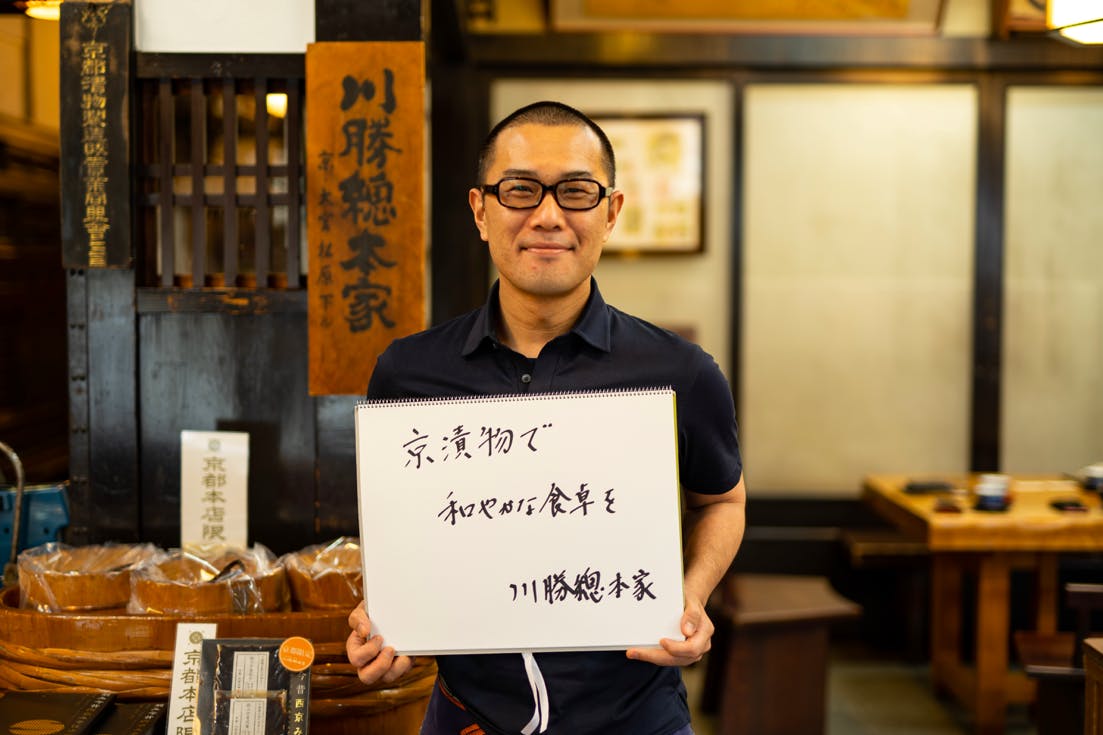 京都漬物製造販賣業商興會
川勝總本家
京 大宮 松原 下ル
京漬物で
和やかな食卓を
川勝總本家
京都本店限
京都本店限
昔西京み